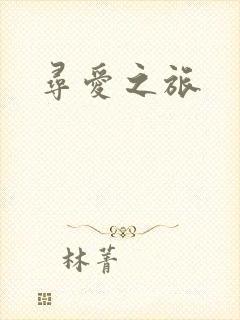 尋愛之旅
林菁